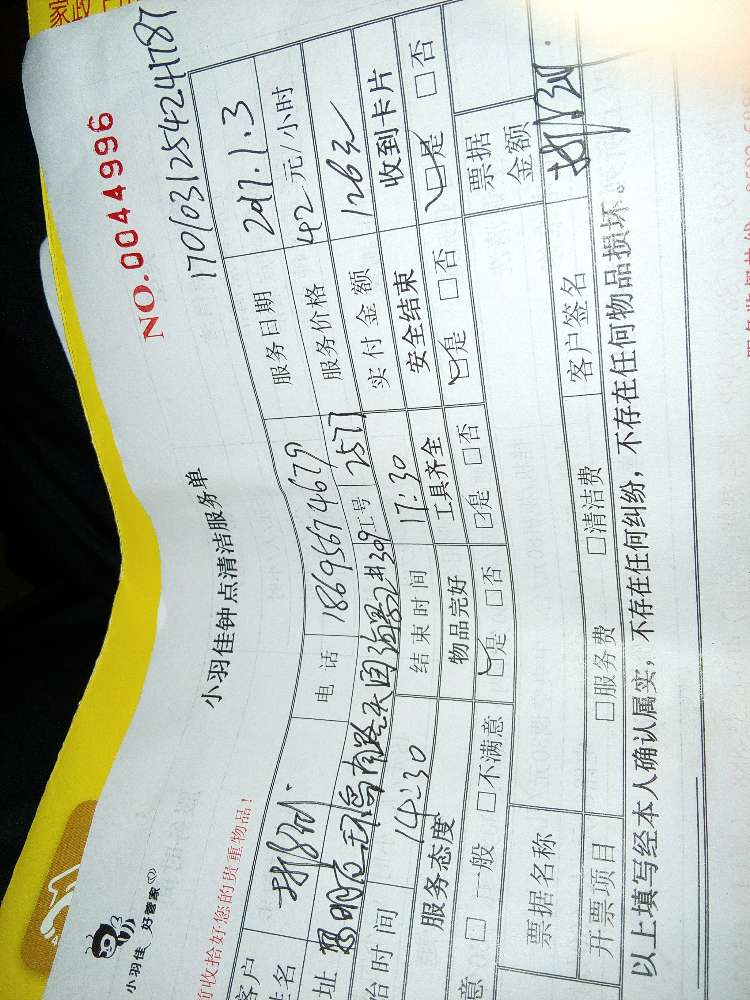 小羽佳 好管家
NO.0044996
小羽佳钟点清洁服务单
1701031254241787
前收拾好您的贵重物品!
客户姓名
电话 18695674679
服务日期 2017.1.3
址
工号 2577
服务价格 42元/小时
始时间 14:30
结束时间 17:30
实付金额 126元
服务态度
物品完好
工具齐全
安全结束
收到卡片
意 □一般 □不满意
□是 □否
□是 □否
□是 □否
□是 □否
票据名称
票据金额
开票项目
□服务费 □清洁费
客户签名
以上填写经本人确认属实,不存在任何纠纷,不存在任何物品损坏。